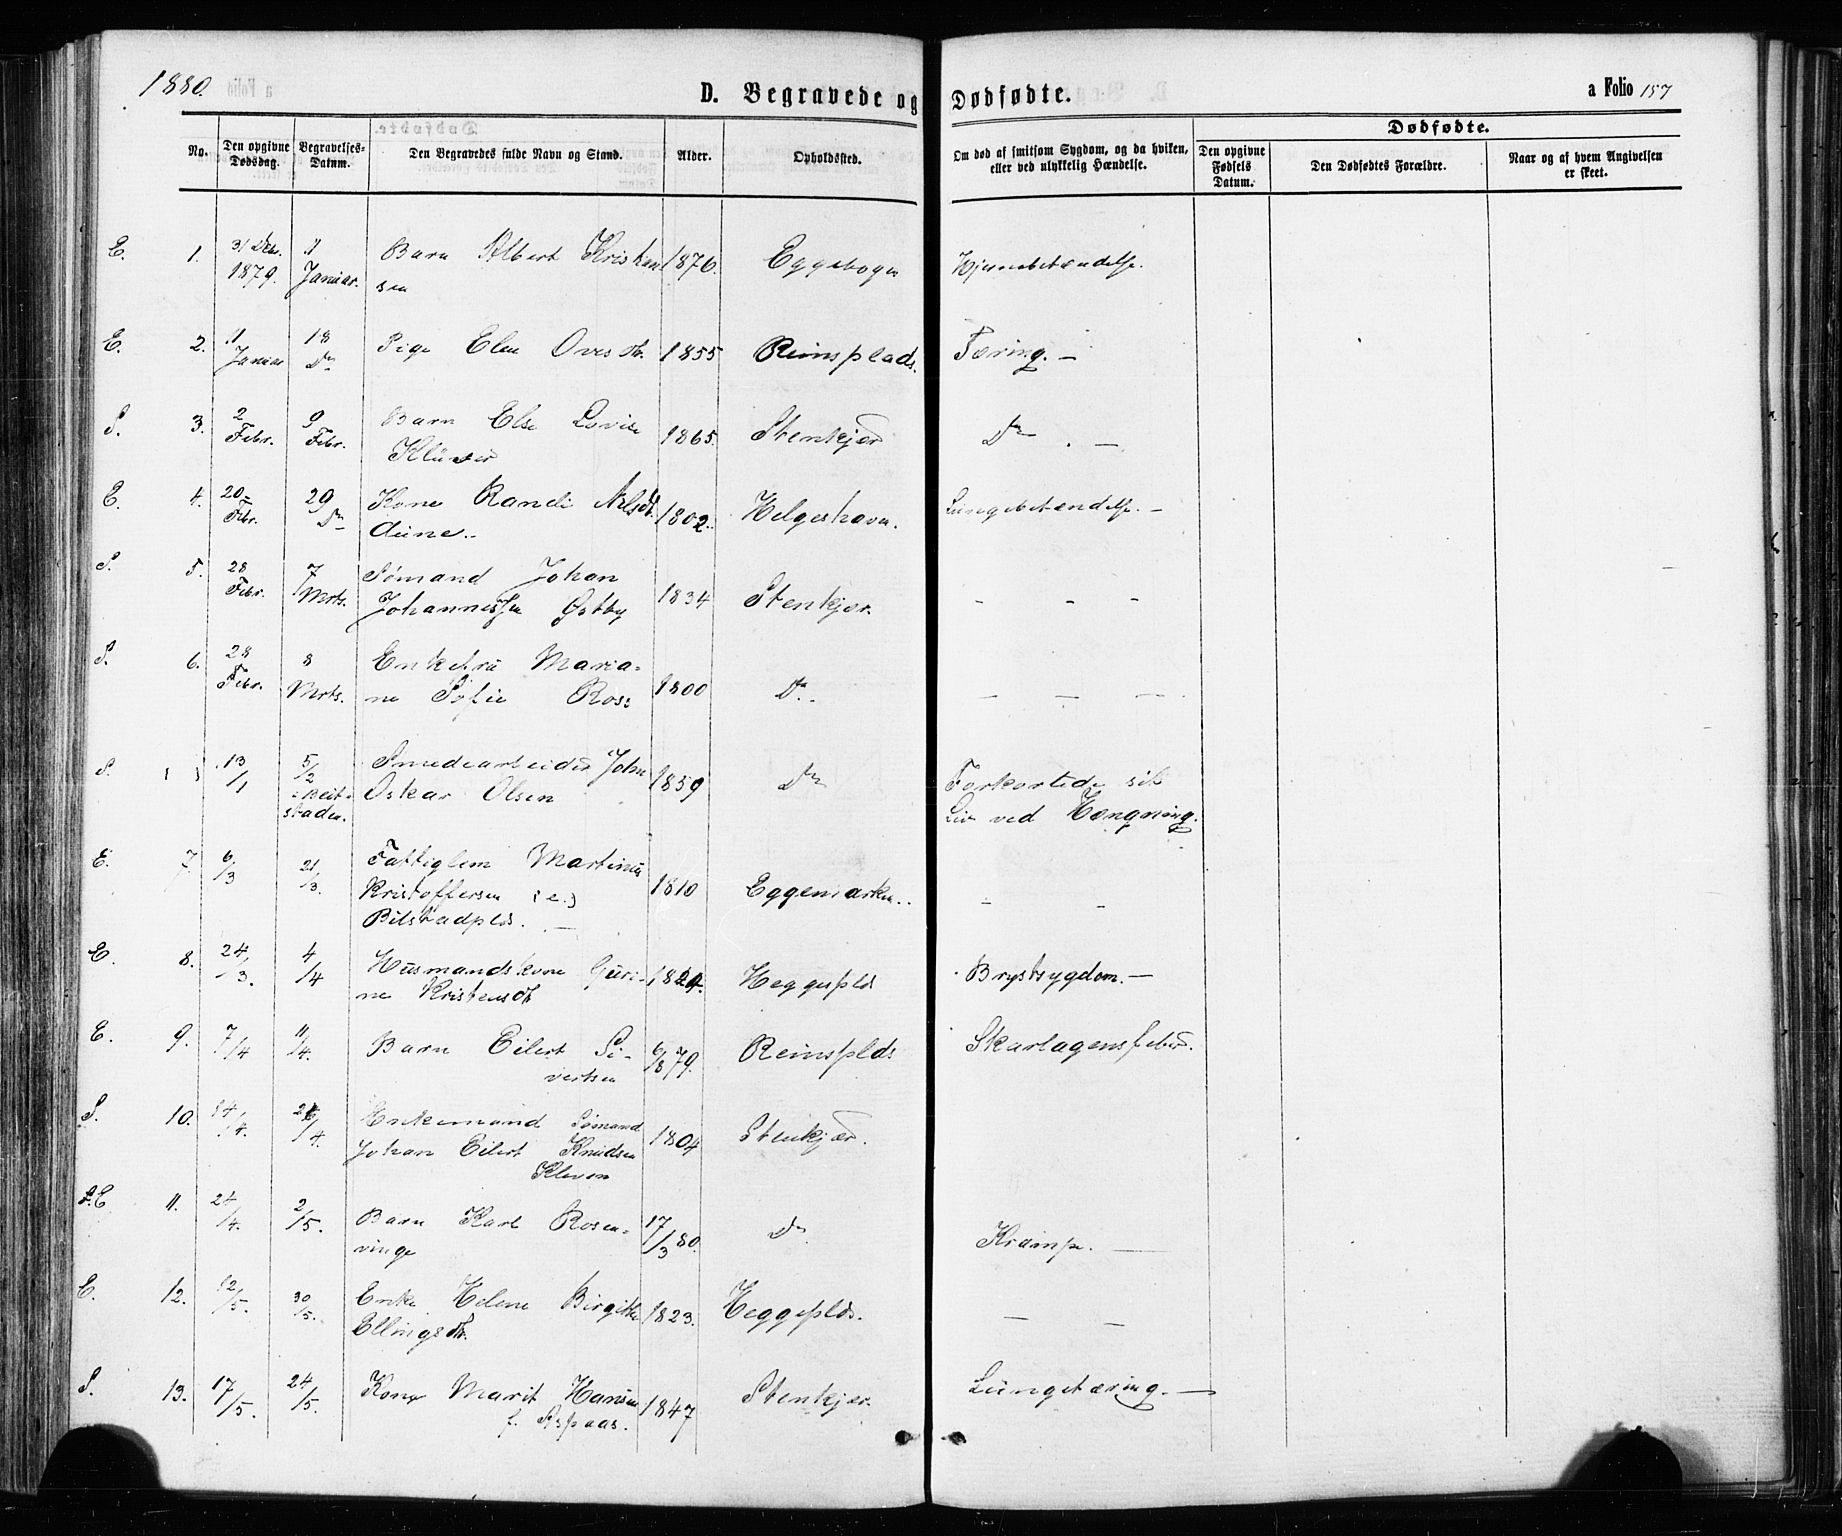 1880.
D. Begravede og Dødfødte.
a Folio 157
No.
Den opgivne Dødsdag.
Begravelses-Datum.
Den Begravedes fulde Navn og Stand.
Alder.
Opholdssted.
Om død af smitsom Sygdom, og da hvilken, eller ved ulykkelig Hændelse.
Dødfødte.
Den opgivne Fødsels Datum.
Den Dødfødtes Forældre.
Naar og af hvem Angivelsen er skeet.
E. 1. 31 Debr. 1879. 11 Januar. Barn Albert Kristian 1876. Eggebogen Hjernebetændelse.
sen
E. 2. 11 Januar 18 Do Pige Elen Ovesdtr. 1855 Reinsplads. Tæring. —
S. 3. 2 Febr. 9 Febr. Barn Else Lovise 1865. Stenkjær Do . —
Klüver
E. 4. 20 Febr. 29 Do Kone Randi Nilsdt. 1802. Helgeshaven. Lungebetændelse. —
dune..
S. 5. 28 Febr. 7 Mrts. Sømand Johan
Johannessen Østby 1834 Stenkjær. - - -
S. 6. 28 Febr. 8 Mrts. Enkefru Maria-
ne Sofie Rose 1800 Do. — — —
S. ( ) 13/1 5/2 Beit-
staden. Smedearbeider John
Oskar Olsen 1859 Do Forkortede sit
Liv ved Hængning.
E. 7. 6/3 21/3. Fattiglem Martinus
Kristoffersen (e.) 1810 Eggemarken.. - -
Bilstadpls. —
E. 8. 24/3. 4/4 Husmandskone Guri-
ne Kristensdt. 1824. Heggespls Brystsygdom. —
E. 9. 7/4 11/4. Barn Eilert Si-
vertsen 6/8 79. Reinspls Skarlagensfeber.
S. 10. 14/4. 26/4 Enkemand Sømand
Johan Eilert Knudsen 1804 Stenkjær.
Kleven
S.E 11. 24/4. 2/5. Barn Karl Rosen-
vinge 17/3 80. Do Krampe. —
E. 12. 12/5. 30/5. Enke Helene Birgitte
Ellingsdt. 1823. Heggespls. — —
S. 13. 17/5. 24/5. Kone Marit Hansen
f. Aspaas. 1847 Stenkjær. Lungetæring. —